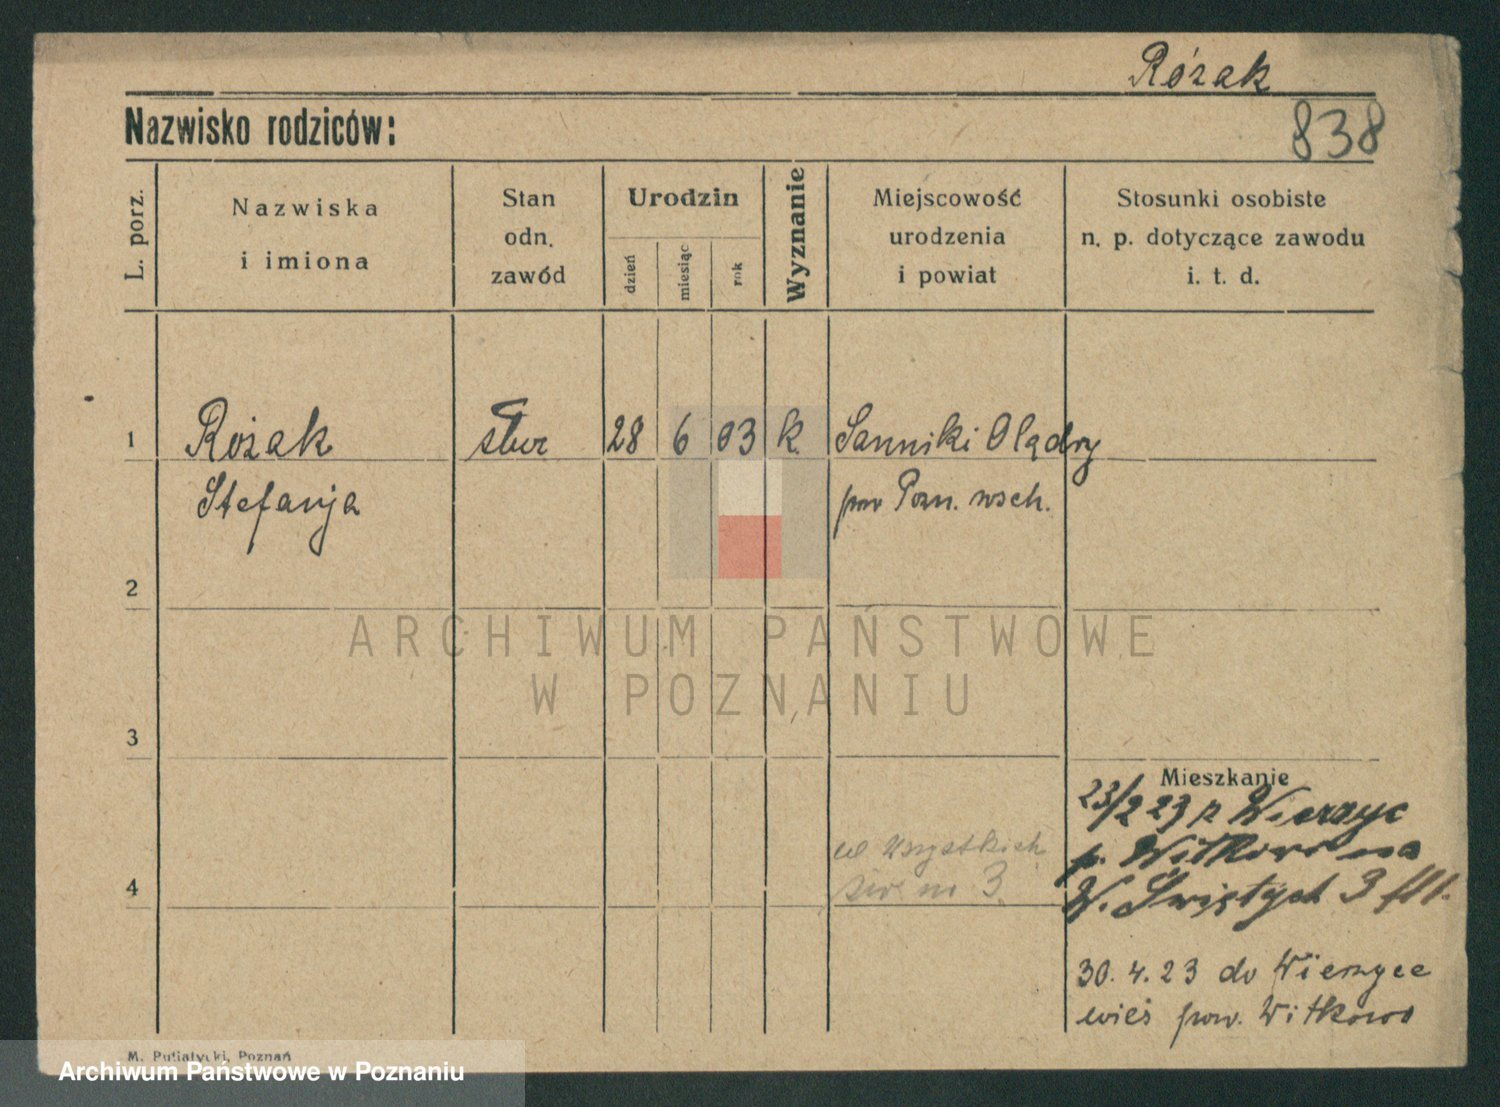 Różak
838
Nazwisko rodziców:
L. porz.
Nazwiska
i imiona
Stan
odn.
zawód
Urodzin
dzień
miesiąc
rok
Wyznanie
Miejscowość
urodzenia
i powiat
Stosunki osobiste
n. p. dotyczące zawodu
i. t. d.
1 Różak służ 28 6 03 k. Sanniki Olądry
Stefanja pow Pozn. wsch.
2
ARCHIWUM PAŃSTWOWE
W POZNANIU
3
Mieszkanie
23/2 23 z Wierzyc
p. Witkowo na
W. Świętych 3
ul Wszystkich
Św. nr 3
4
30. 4. 23 do Wierzyce
wieś pow. Witkowo
M. Putiatycki, Poznań
Archiwum Państwowe w Poznaniu